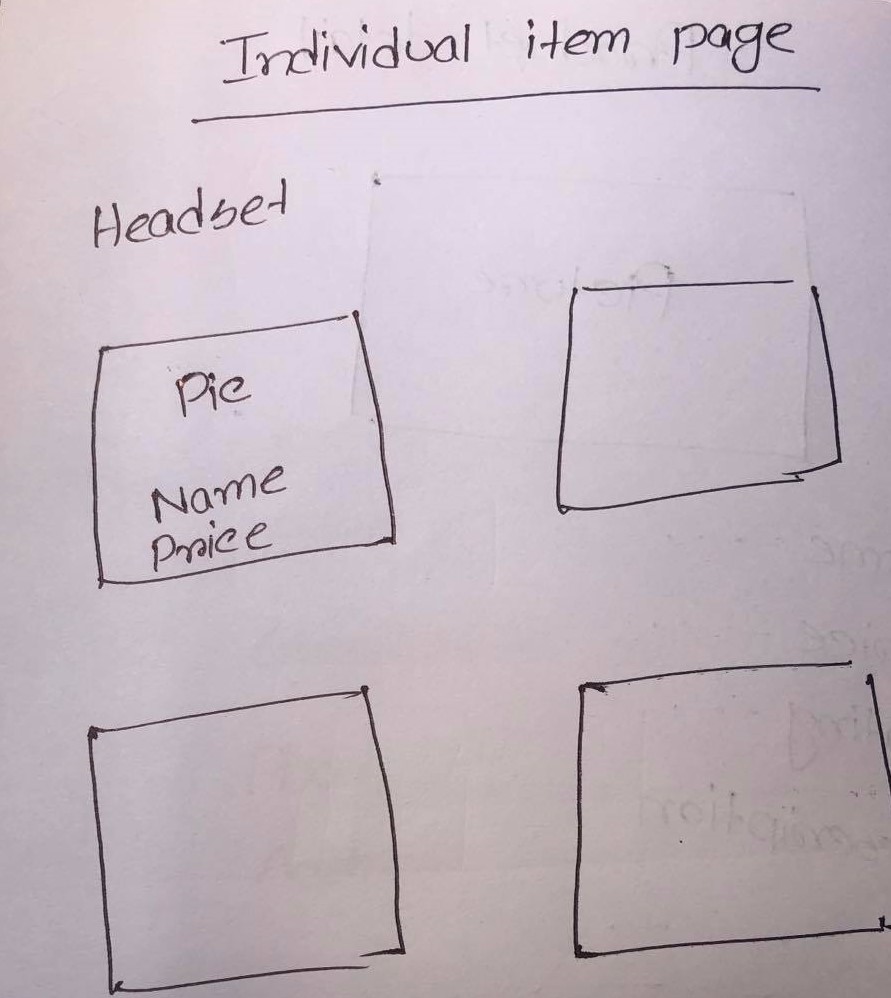 Individual item page
Headset
Pic
Name
Price